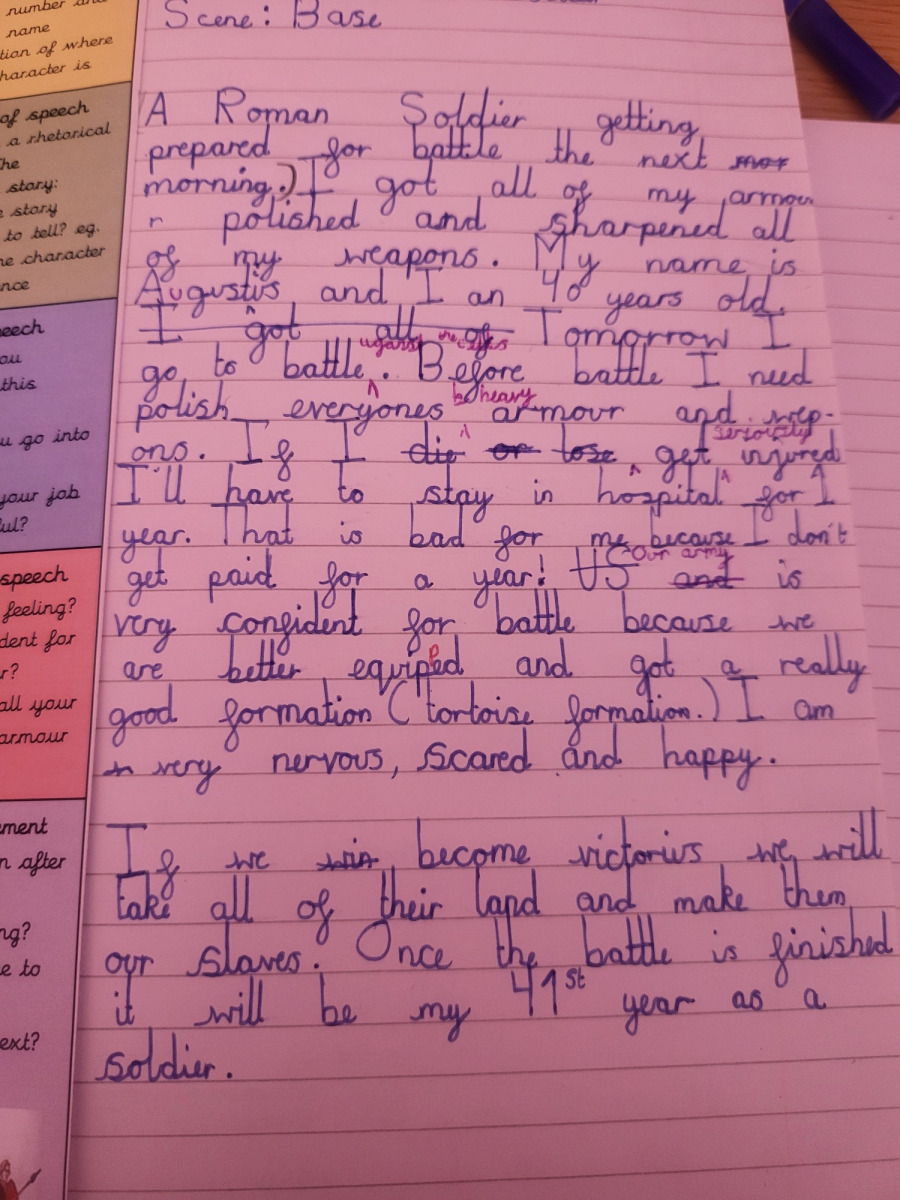 number and
name
tion of where
haracter is
of speech
a rhetorical
he
story:
e story
to tell? eg.
he character
nce
eech
ou
this
u go into
your job
ul?
speech
feeling?
dent for
r?
all your
armour
ment
n after
ng?
e to
ext?
Scene: Base
A Roman Soldier getting
prepared for battle the next
morning.) I got all of my armou
r polished and sharpened all
of my weapons. My name is
Augustus and I an 40 years old.
I got all of Tomorrow I
go to battle. Before battle I need
be heavy
polish everyones armour and wep-
seriously
ons. If I die or lose get injured
I'll have to stay in hospital for 1
year. That is bad for me because I don't
Our army
get paid for a year! US and is
very confident for battle because we
are better equipped and got a really
good formation (tortoise formation.) I am
very nervous, scared and happy.
If we win become victorius we will
take all of their land and make them
our slaves. Once the battle is finished
it will be my 41st year as a
soldier.